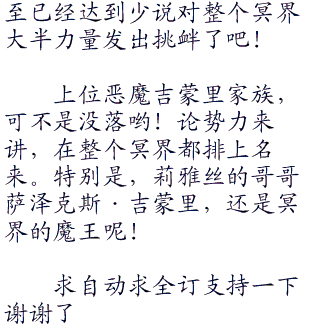 至已经达到少说对整个冥界
大半力量发出挑衅了吧！
上位恶魔吉蒙里家族，
可不是没落哟！论势力来
讲，在整个冥界都排上名
来。特别是，莉雅丝的哥哥
萨泽克斯·吉蒙里，还是冥
界的魔王呢！
求自动求全订支持一下
谢谢了